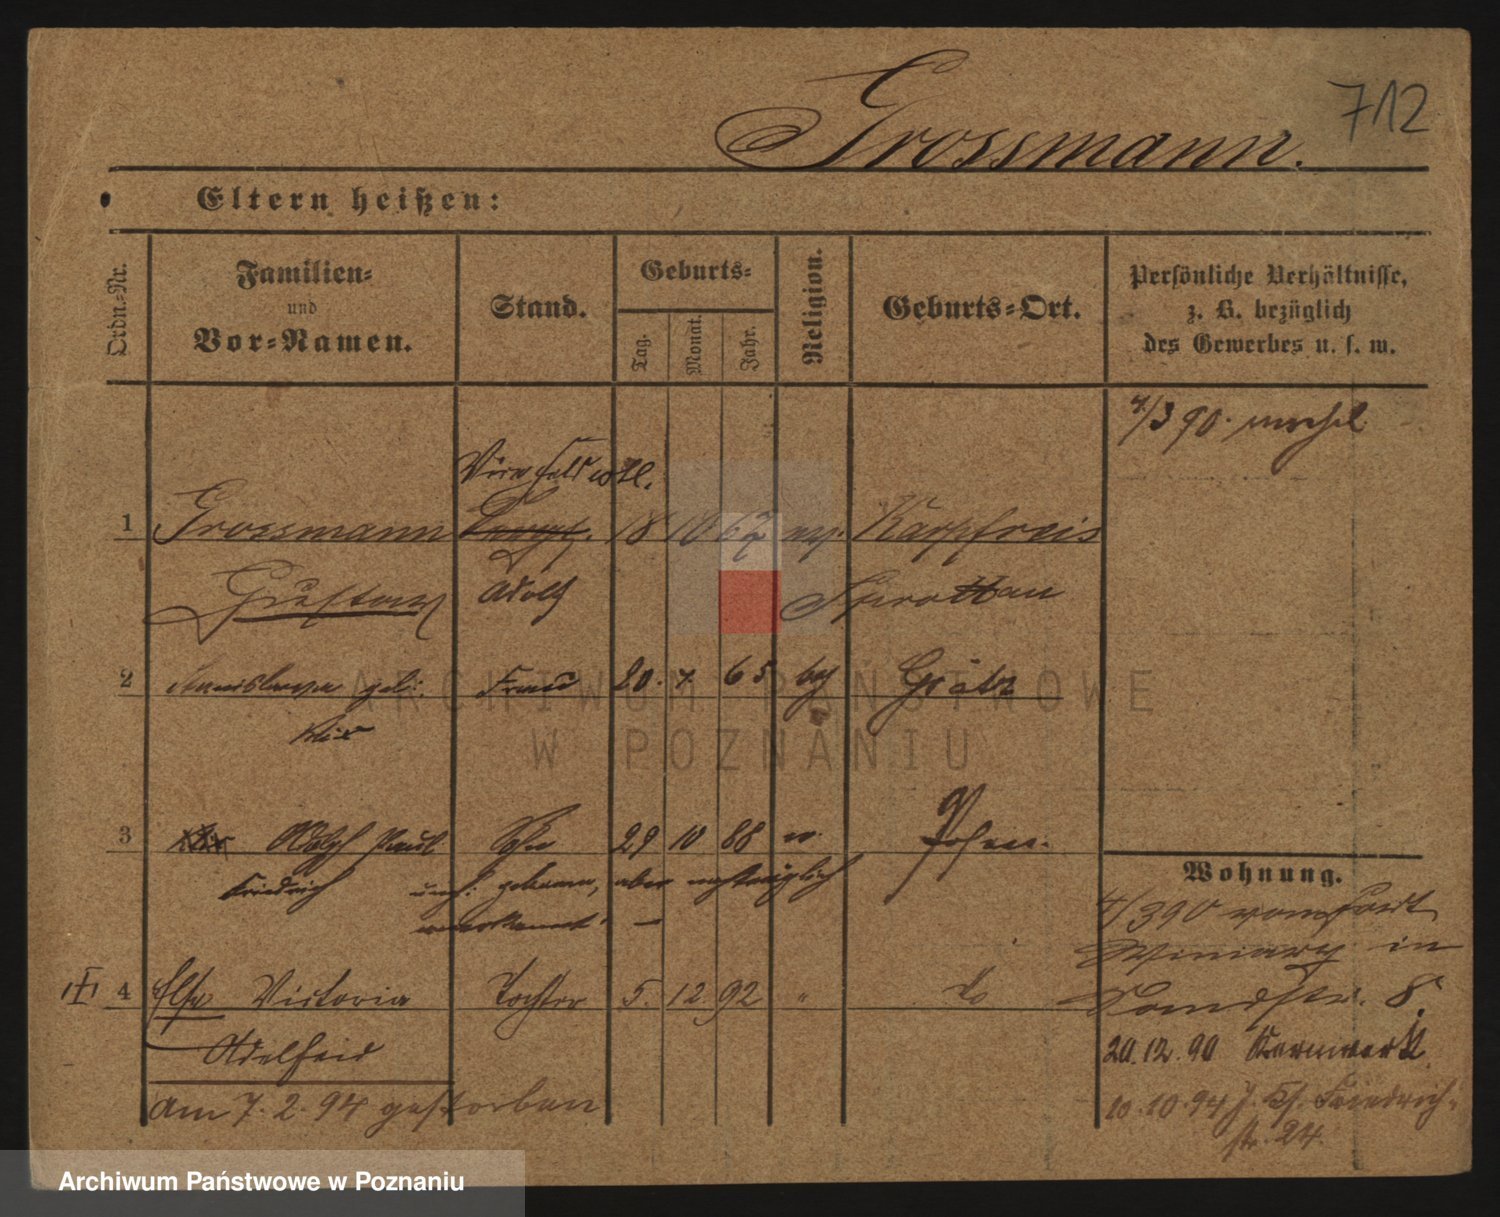 712
Grossmann.
Eltern heißen:
Ordn.-Nr.
Familien-
und
Vor-Namen.
Stand.
Geburts-
Tag.
Monat.
Jahr.
Religion.
Geburts-Ort.
Persönliche Verhältnisse,
z. B. bezüglich
des Gewerbes u. s. w.
4/3 90.
1 Grossmann 18 10 67 ev.
Gustav Adolf Sprottau
2 geb. Frau 20. 7. 65 Grätz
3 Adolf Paul Sohn 29 10 88 Posen.
Friedrich geboren, aber nachträglich
anerkannt. —
Wohnung.
4/3 90 vom Fort
Winiary in
8.
4 Else Victoria Tochter 5. 12. 92 " do
Adelheid
20.12.90 Kernwerk
am 7.2.94 gestorben
10.10.94 Friedrich-
str. 24.
ARCHIWUM PAŃSTWOWE
W POZNANIU
Archiwum Państwowe w Poznaniu